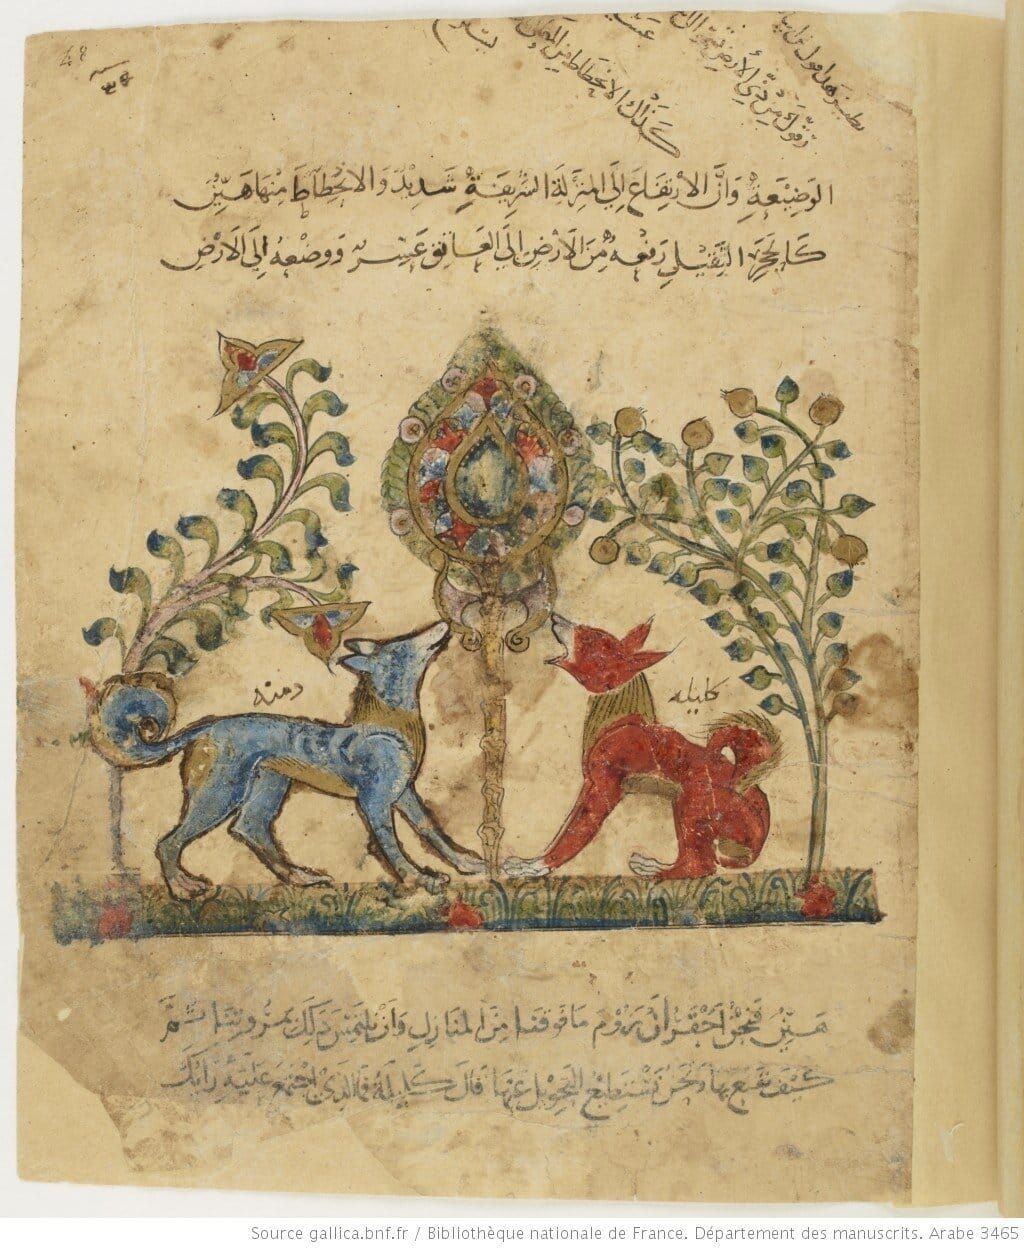 48
كذلك الانحطاط من
الوَضِيْعَةِ وَانَّ الارْتِفَاعَ اِلَى المنزلَة الشَّرِيفَةِ شَدِيدٌ وَالانْحِطَاطَ مِنْهَا هَيِّنٌ
كَالحَجَرِ الثَّقِيْلِ رَفْعهُ مِنَ الاَرْضِ اِلَى العَاتِق عَسِرٌ وَوَضْعهُ اِلَى الاَرْضِ
كليله
دمنه
هَيِّنٌ فَنَحْنُ اَحَقُّ اَنْ نَرُوْمَ مَا فَوْقَنَا مِنَ المنَازِلِ وَانْ نَلتَمِسَ ذلِكَ بِمُرُوءتنا ثُمَّ
كَيْفَ نَقْنَع بِهَا وَنَحْنُ نَسْتَطِيعُ التحْوِيْلَ عَنْهَا قَالَ كَلِيْلَهُ فَمَا الذِي اجْتَمَعَ عَلَيْهِ رَايُكَ
Source gallica.bnf.fr / Bibliothèque nationale de France. Département des manuscrits. Arabe 3465